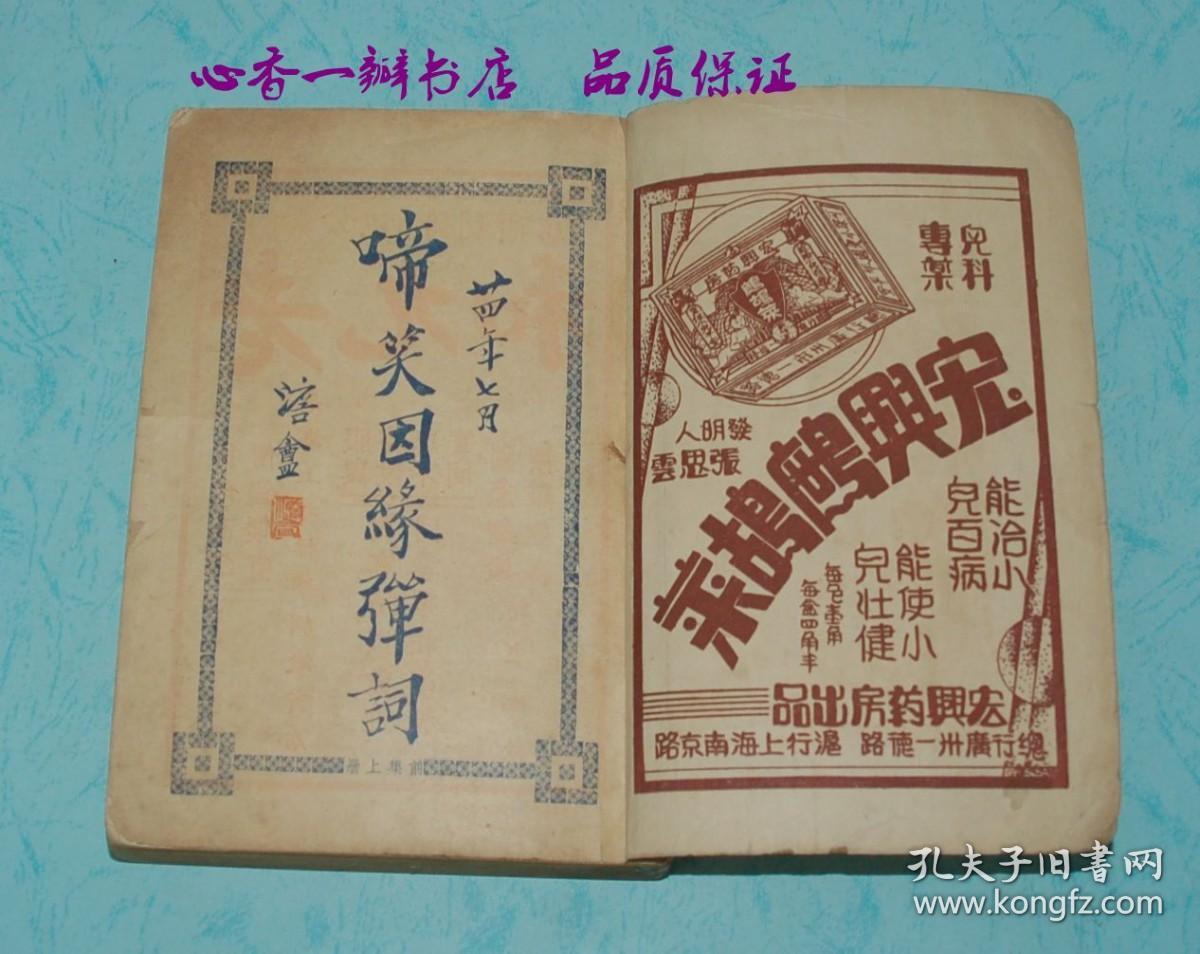 心香一瓣书店 品质保证
廿四年七月
啼笑因緣彈詞
前集上册
兒科
專藥
宏興鷓鴣菜
發明人
張思雲
能治小
兒百病
能使小
兒壯健
每包壹角
每盒四角半
宏興葯房出品
總行廣州一德路 滬行上海南京路
孔夫子旧书网
www.kongfz.com